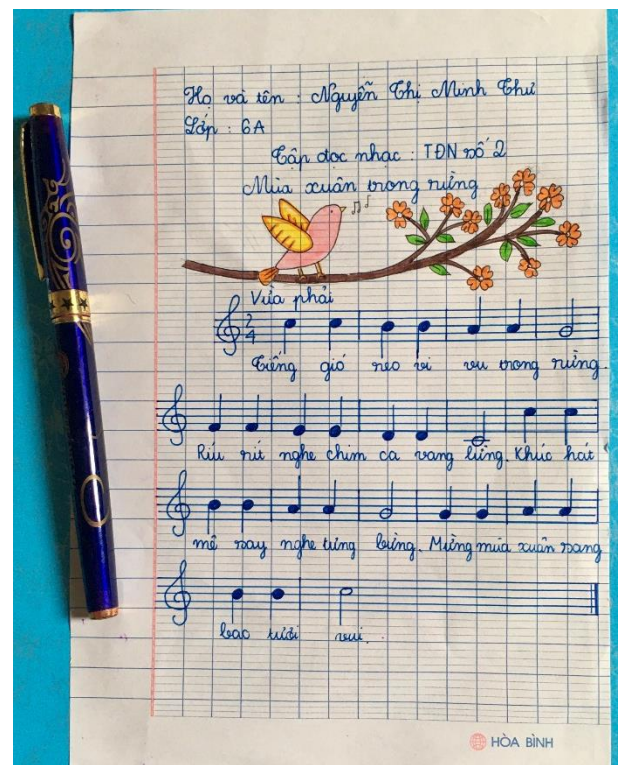 Họ và tên : Nguyễn Thị Minh Thư
Lớp : 6A
Tập đọc nhạc : TĐN số 2
Mùa xuân trong rừng
Vừa phải
2
4
Tiếng gió reo vi vu trong rừng.
Ríu rít nghe chim ca vang lừng. Khúc hát
mê say nghe tưng bừng. Mừng mùa xuân sang
bao tươi vui.
HÒA BÌNH